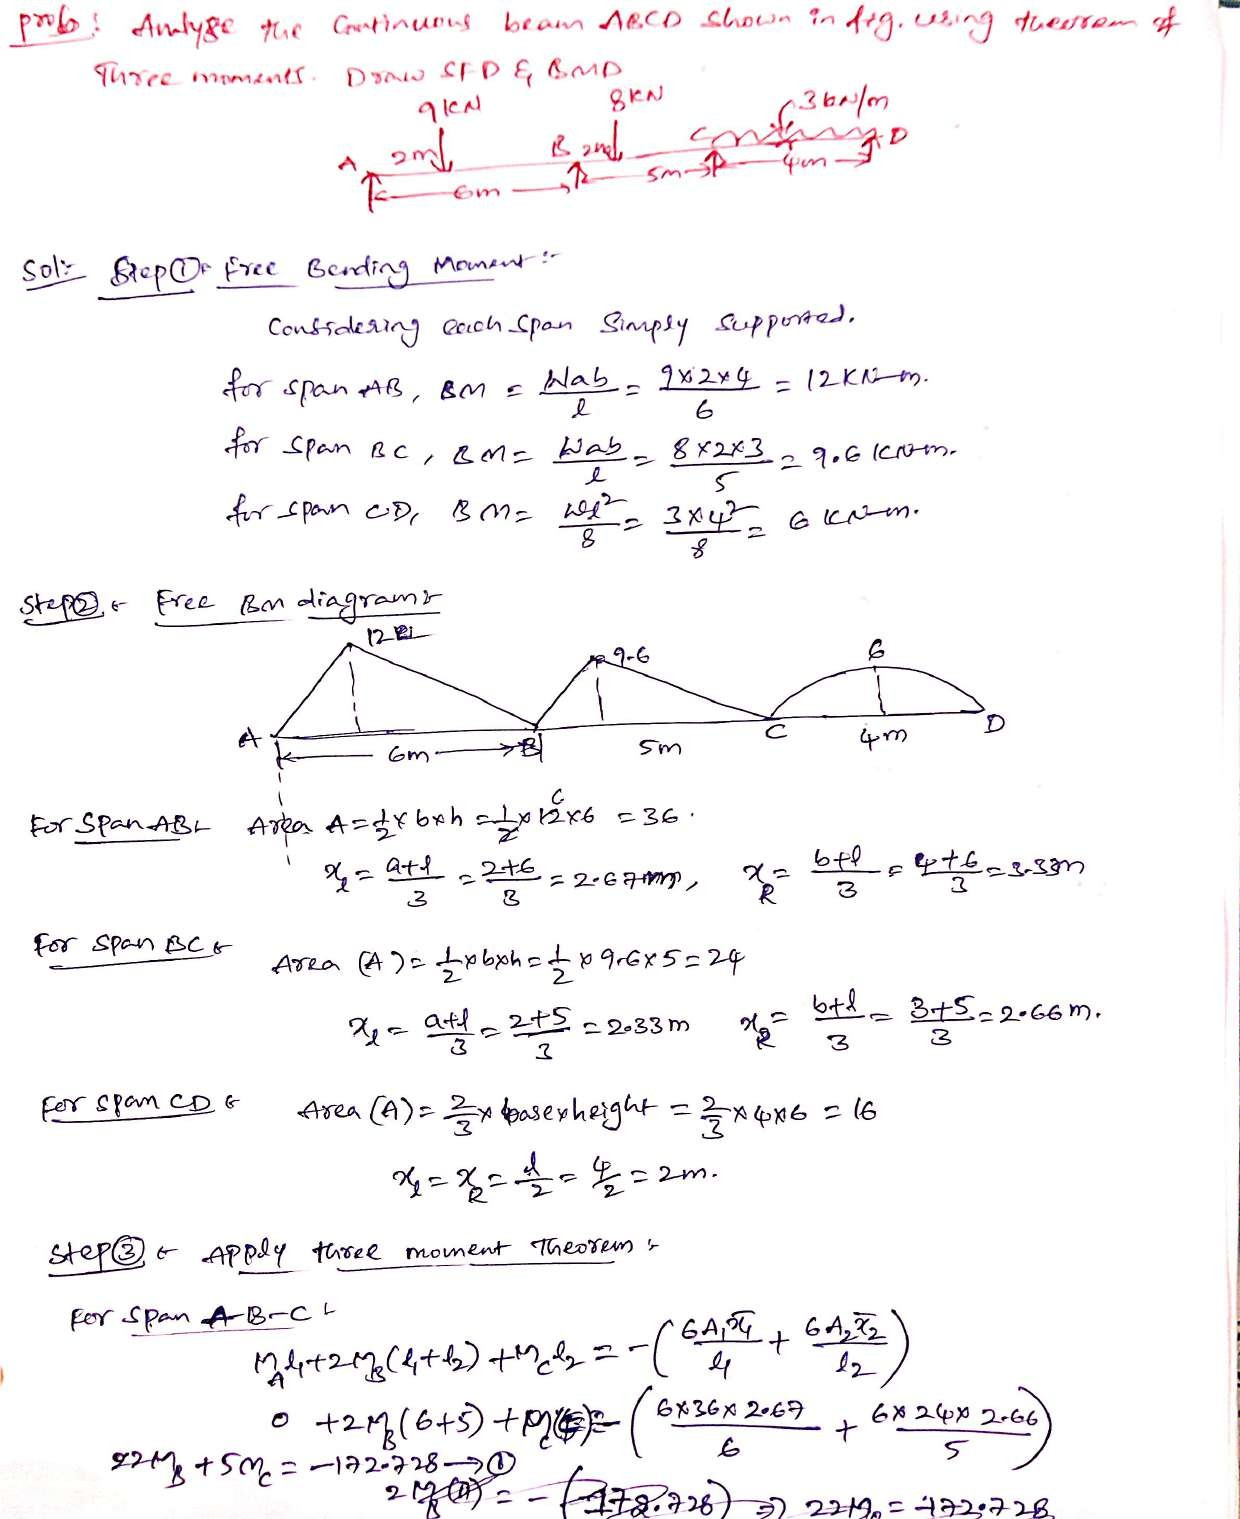 prob: Analyse the Continuous beam ABCD shown in fig. using theorem of
Three moments. Draw SFD & BMD
9KN 8KN 3kN/m
A 2m B 2m C D
6m 5m 4m
Sol:- Step① Free Bending Moment:-
Considering each span Simply Supported.
for span AB, BM = Wab/l = 9×2×4/6 = 12 KN-m.
for span BC, BM = Wab/l = 8×2×3/5 = 9.6 KN-m.
for span CD, BM = wl²/8 = 3×4²/8 = 6 KN-m.
Step② Free BM diagram:-
12 9.6 6
A B C D
6m 5m 4m
For Span AB:- Area A = 1/2 × b×h = 1/2 × 12×6 = 36.
6
x_l = a+l/3 = 2+6/3 = 2.67m, x_R = b+l/3 = 4+6/3 = 3.33m
For Span BC:- Area (A) = 1/2 × b×h = 1/2 × 9.6×5 = 24
x_l = a+l/3 = 2+5/3 = 2.33m x_R = b+l/3 = 3+5/3 = 2.66m.
For span CD:- Area (A) = 2/3 × base×height = 2/3 ×4×6 = 16
x_l = x_R = l/2 = 4/2 = 2m.
Step③:- Apply three moment Theorem:-
For span A-B-C:-
M_A l₁ + 2M_B (l₁+l₂) + M_C l₂ = -(6A₁x̄₁/l₁ + 6A₂x̄₂/l₂)
0 + 2M_B (6+5) + M_C(5) = -(6×36×2.67/6 + 6×24×2.66/5)
22M_B + 5M_C = -172.728 → ①